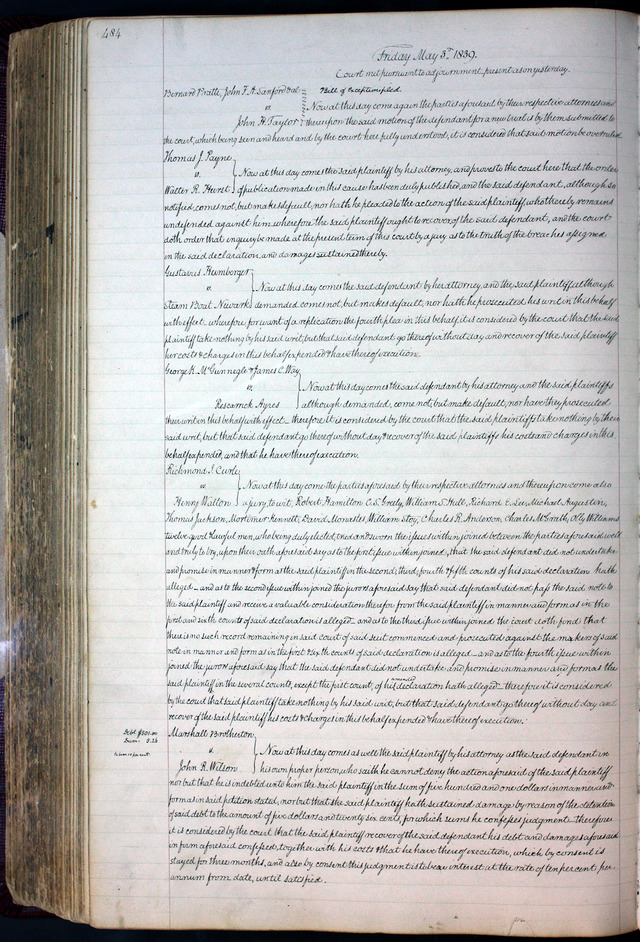 484
Friday May 3d 1839.
Court met pursuant to adjournment, present as on yesterday.
Bernard Pratte, John F. A. Sanford & al Bill of Exceptions filed
vs. Now at this day come again the parties aforesaid by their respective attornies and
John H. Taylor thereupon the said motion of the defendant for a new trial is by them submitted to
the court, which being seen and heard and by the court here fully understood, it is considered that said motion be overruled
Thomas J. Payne
vs. Now at this day comes the said plaintiff by his attorney, and proves to the court here that the order
Walter R. Hurst of publication made in this cause has been duly published, and the said defendant, although so
notified, comes not, but makes default, nor hath he pleaded to the action of the said plaintiff, who thereby remains
undefended against him, wherefore the said plaintiff ought to recover of the said defendant, and the court
doth order that inquiry be made at the present term of this court by a jury as to the truth of the breaches assigned
in the said declaration, and damages sustained thereby.
Gustavus Humberger
vs. Now at this day comes the said defendant by her attorney, and the said plaintiff although
Steam Boat Newark demanded comes not, but makes default, nor hath he prosecuted his writ in this behalf
with effect wherefore for want of a replication the fourth plea in this behalf, it is considered by the court that the said
plaintiff take nothing by his said writ, but that said defendant go thereof without day, and recover of the said plaintiff
her costs & charges in this behalf expended & have thereof execution.
George K. McGunnegle & James C. Way
vs. Now at this day comes the said defendant by his attorney and the said plaintiffs
Rescarrick Ayres although demanded, come not, but make default, nor have they prosecuted
their writ in this behalf with effect therefore it is considered by the court that the said plaintiffs take nothing by their
said writ, but that said defendant go thereof without day & recover of the said plaintiffs his costs and charges in this
behalf expended, and that he have thereof execution.
Richmond J. Curle
vs Now at this day come the parties aforesaid by their respective attornies and thereupon come also
Henry Walton a jury to wit, Robert Hamilton C. S. Greely, William S. Hull, Richard E. Lee, Michael Augustein,
Thomas Jackson, Mortimer Kennett, David Monastes, William Stoy, Charles R. Anderson, Charles McGrath, Olly Williams
twelve good & lawful men, who being duly elected, tried and sworn the issues within joined between the parties aforesaid well
and truly to try, upon their oath aforesaid say as to the first issue within joined, that the said defendant did not undertake
and promise in manner & form as the said plaintiff in the second, third, fourth & fifth counts of his said declaration hath
alleged and as to the second issue within joined the jurors aforesaid say that said defendant did not pass the said note to
the said plaintiff and receive a valuable consideration therefor from the said plaintiff in manner and form as in the
first and sixth counts of said declaration is alleged and as to the third issue within joined, the court doth find that
there is no such record remaining in said court of said suit commenced and prosecuted against the makers of said
note in manner and form as in the first & sixth counts of said declaration is alleged and as to the fourth issue within
joined the jurors aforesaid say that the said defendant did not undertake and promise in manner and form as the
said plaintiff in the several counts, except the first count, of his amended declaration hath alleged therefore it is considered
by the court that said plaintiff take nothing by his said writ, but that said defendant go thereof without day and
recover of the said plaintiff his costs & charges in this behalf expended & have thereof execution.
Marshall Brotherton
Debt $501.00
Dam. 5.26
vs. Now at this day comes as well the said plaintiff by his attorney as the said defendant in
John R. Wilson his own proper person, who saith he cannot deny the action aforesaid of the said plaintiff
nor but that he is indebted unto him the said plaintiff in the sum of five hundred and one dollars in manner and
form as in said petition stated, nor but that the said plaintiff hath sustained damage by reason of the detention
of said debt to the amount of five dollars and twenty six cents, for which sums he confesses judgment therefore
it is considered by the court that the said plaintiff recover of the said defendant his debt and damages aforesaid
in form aforesaid confessed, together with his costs & that he have thereof execution, which by consent is
stayed for three months, and also by consent this judgment is to bear interest at the rate of ten per cent per
annum from date, until satisfied.